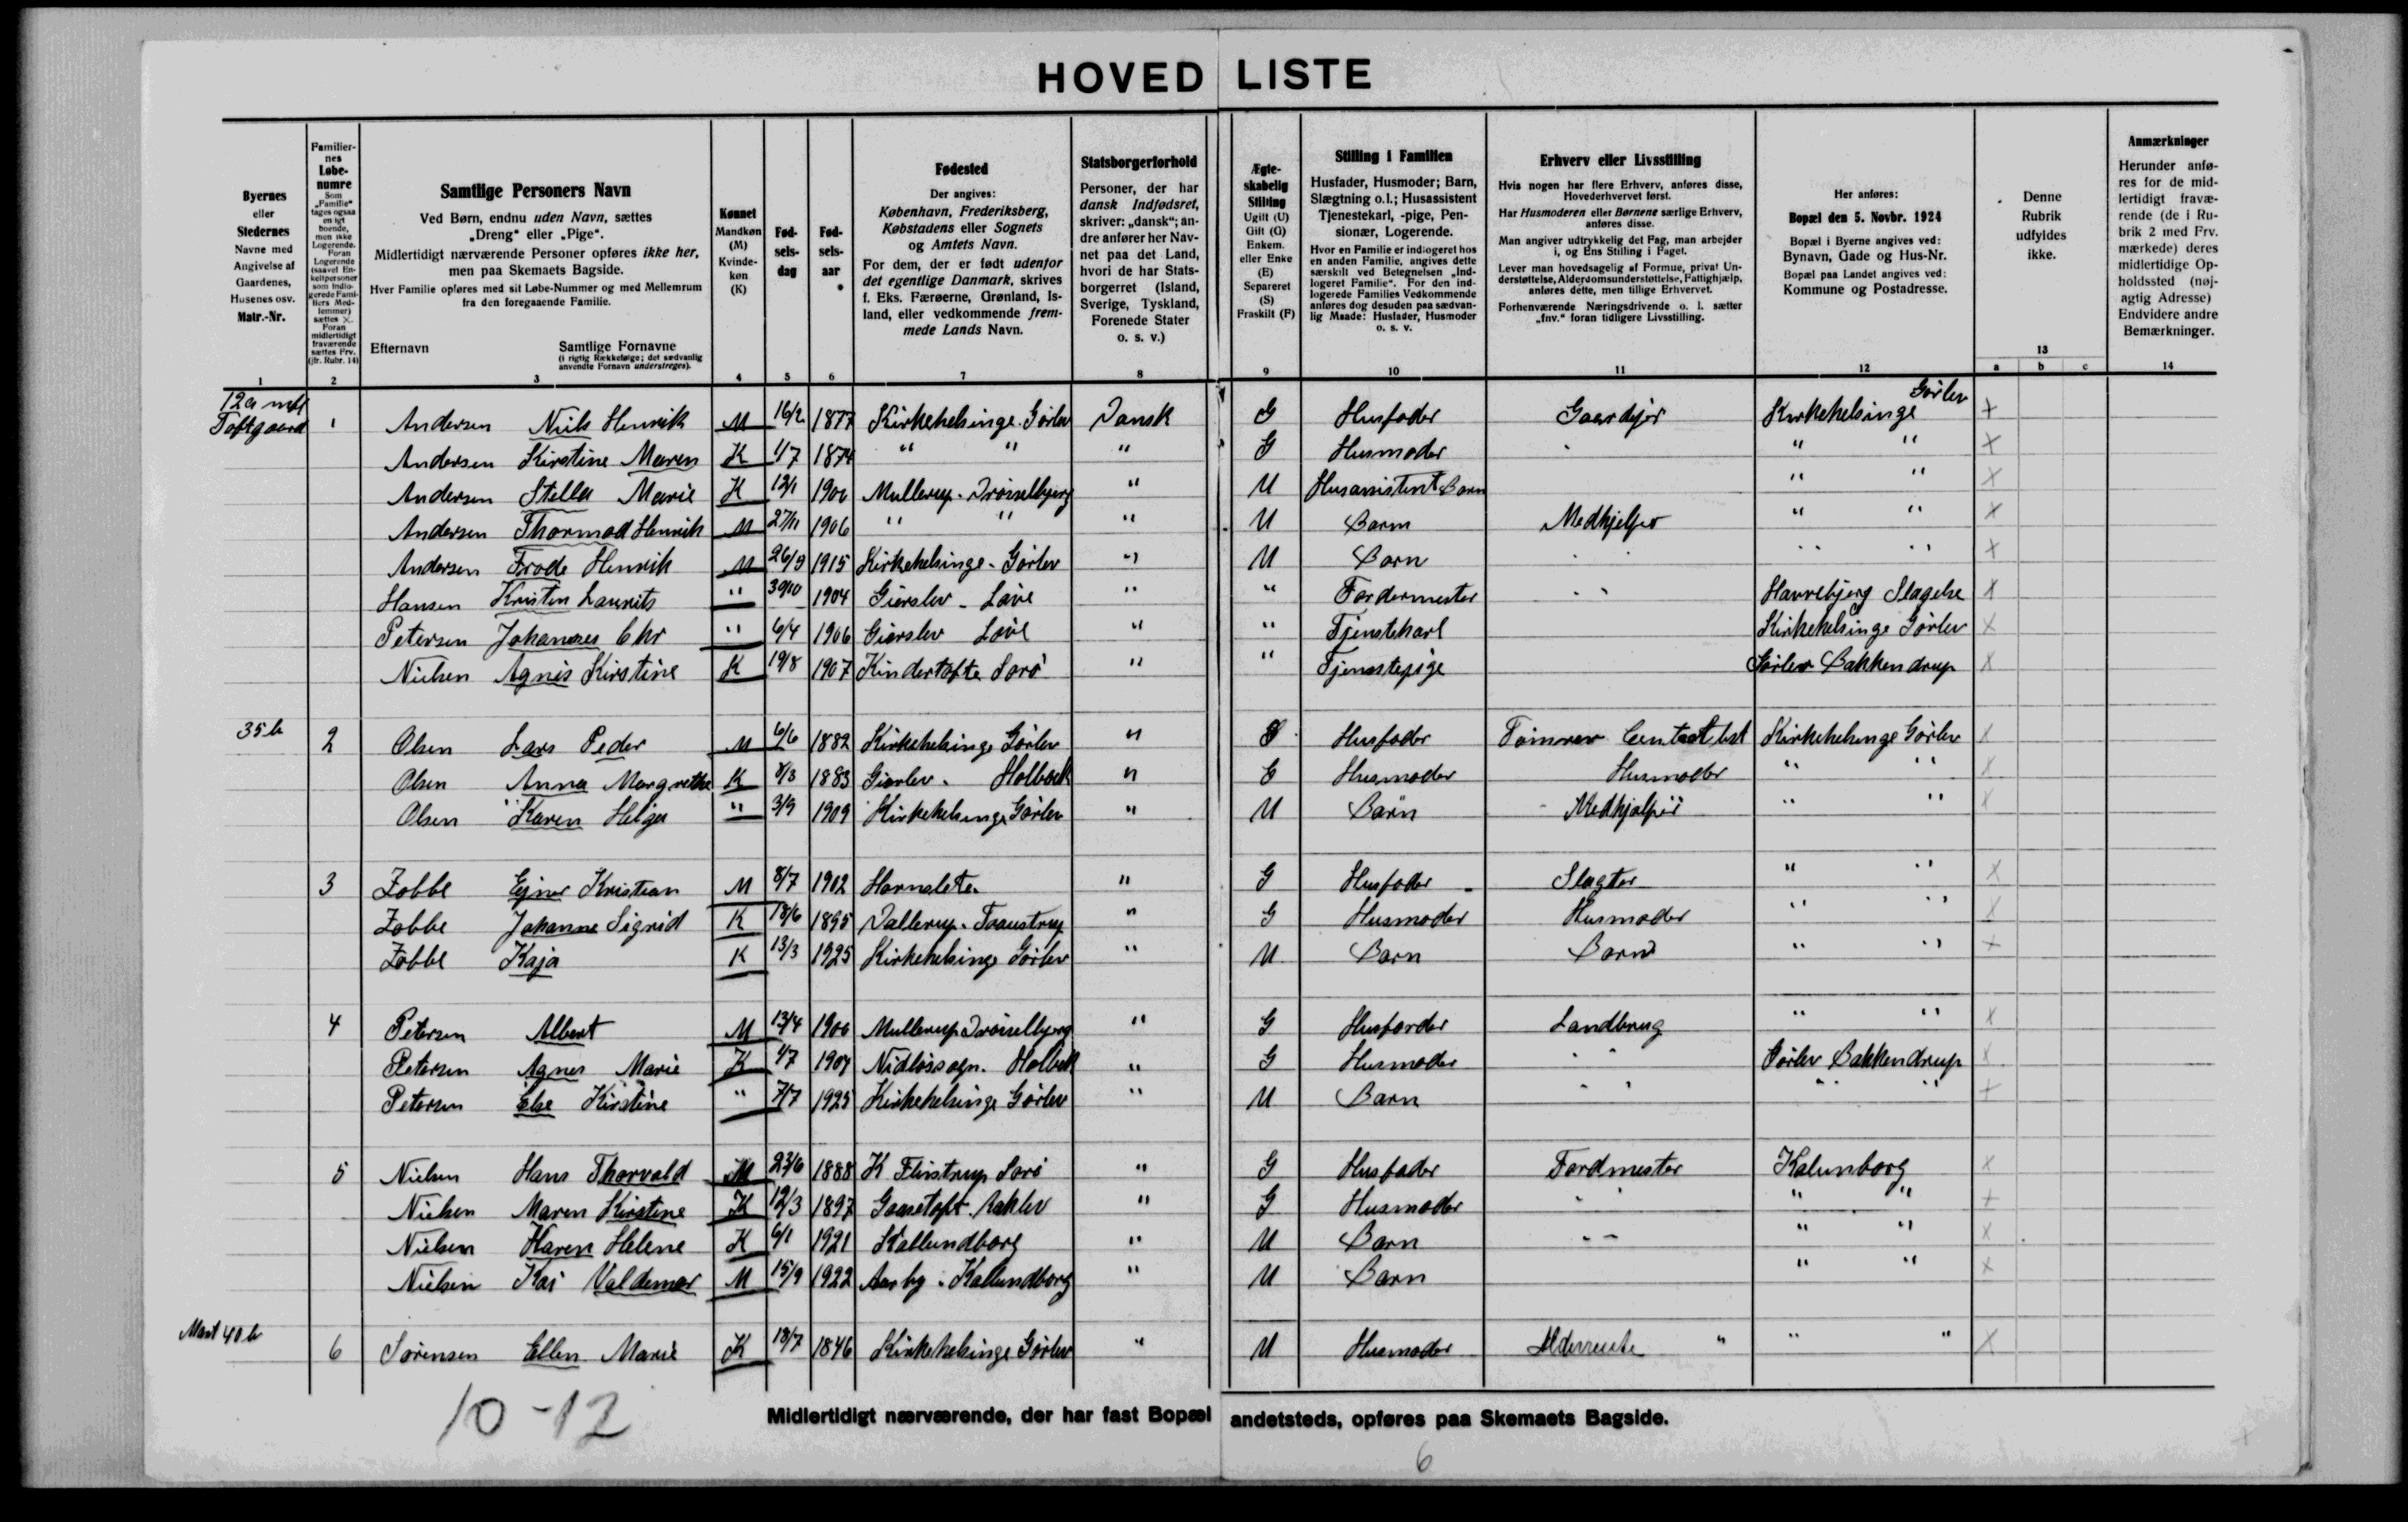 HOVED LISTE
Byernes
eller
Stedernes
Navne med
Angivelse af
Gaardenes,
Husenes osv.
Matr.-Nr.
1
Familier-
nes
Løbe-
numre
Som
„Familie“
tages ogsaa
en igt
boende,
men ikke
Logerende.
Foran
Logerende
(saavel En-
keltpersoner
som Indlo-
gerede Fami-
liers Med-
lemmer)
sættes X.
Foran
midlertidigt
fraværende
sættes Frv.
(jfr. Rubr. 14)
2
Samtlige Personers Navn
Ved Børn, endnu uden Navn, sættes
„Dreng“ eller „Pige“.
Midlertidigt nærværende Personer opføres ikke her,
men paa Skemaets Bagside.
Hver Familie opføres med sit Løbe-Nummer og med Mellemrum
fra den foregaaende Familie.
Efternavn
Samtlige Fornavne
(i rigtig Rækkefølge; det sædvanlig
anvendte Fornavn understreges).
3
Kønnet
Mandkøn
(M)
Kvinde-
køn
(K)
4
Fød-
sels-
dag
5
Fød-
sels-
aar
6
Fødested
Der angives:
København, Frederiksberg,
Købstadens eller Sognets
og Amtets Navn.
For dem, der er født udenfor
det egentlige Danmark, skrives
f. Eks. Færøerne, Grønland, Is-
land, eller vedkommende frem-
mede Lands Navn.
7
Statsborgerforhold
Personer, der har
dansk Indfødsret,
skriver: „dansk“; an-
dre anfører her Nav-
net paa det Land,
hvori de har Stats-
borgerret (Island,
Sverige, Tyskland,
Forenede Stater
o. s. v.)
8
Ægte-
skabelig
Stilling
Ugift (U)
Gift (G)
Enkem.
eller Enke
(E)
Separeret
(S)
Fraskilt (F)
9
Stilling i Familien
Husfader, Husmoder; Barn,
Slægtning o.l.; Husassistent
Tjenestekarl, -pige, Pen-
sionær, Logerende.
Hvor en Familie er indlogeret hos
en anden Familie, angives dette
særskilt ved Betegnelsen „Ind-
logeret Familie“. For den ind-
logerede Families Vedkommende
anføres dog desuden paa sædvan-
lig Maade: Husfader, Husmoder
o. s. v.
10
Erhverv eller Livsstilling
Hvis nogen har flere Erhverv, anføres disse,
Hovederhvervet først.
Har Husmoderen eller Børnene særlige Erhverv,
anføres disse.
Man angiver udtrykkelig det Fag, man arbejder
i, og Ens Stilling i Faget.
Lever man hovedsagelig af Formue, privat Un-
derstøttelse, Alderdomsunderstøttelse, Fattighjælp,
anføres dette, men tillige Erhvervet.
Forhenværende Næringsdrivende o. l. sætter
„fnv.“ foran tidligere Livsstilling.
11
Her anføres:
Bopæl den 5. Novbr. 1924
Bopæl i Byerne angives ved:
Bynavn, Gade og Hus-Nr.
Bopæl paa Landet angives ved:
Kommune og Postadresse.
12
Denne
Rubrik
udfyldes
ikke.
13
a b c
Anmærkninger
Herunder anfø-
res for de mid-
lertidigt fravæ-
rende (de i Ru-
brik 2 med Frv.
mærkede) deres
midlertidige Op-
holdssted (nøj-
agtig Adresse)
Endvidere andre
Bemærkninger.
14
12a
Toftgaard 1 Andersen Niels Henrik M 16/2 1877 Kirkehelsinge Gørlev Dansk G Husfader Gaardejer Kirkehelsinge Gørlev X
Andersen Kirstine Maren K 1/7 1874 " " " G Husmoder " " X
Andersen Stella Marie K 1900 Mullerup - Drøsselbjerg " U Husassistent Barn " " X
Andersen Thormod Henrik M 27/11 1906 " " " U Barn Medhjelper " " X
Andersen Frode Henrik M 26/9 1915 Kirkehelsinge - Gørlev " U Barn " " " X
Hansen Kristen Laurits " 30/10 1904 Gierslev - Løve " " Fordermester " Havrebjerg Slagelse X
Petersen Johannes Chr " 6/4 1906 Gierslev Løve " " Tjenstekarl Kirkehelsinge Gørlev X
Nielsen Agnes Kirstine K 19/8 1907 Kindertofte Sorø " " Tjenstepige Gørlev Bakkendrup X
35 b 2 Olsen Lars Peder M 6/6 1882 Kirkehelsinge Gørlev " Husfader Tømrer Kirkehelsinge Gørlev X
Olsen Anna Margrethe K 1883 Gierlev. Holbæk " Husmoder Husmoder " " X
Olsen Karen Helga " 3/9 1909 Kirkehelsinge Gørlev " U Barn Medhjelper " " X
3 Zobbe Ejner Kristian M 8/7 1902 " G Husfader Slagter " " X
Zobbe Johanne Sigrid K 18/6 1895 Vallerup. " G Husmoder Husmoder " " X
Zobbe Kaja K 13/3 1925 Kirkehelsinge Gørlev " U Barn Barn " " X
4 Petersen Albert M 13/4 1900 Mullerup Drøsselbjerg " G Husfarder Landbrug " " X
Petersen Agnes Marie K 1/7 1907 Holbæk " G Husmoder " " Gørlev Bakkendrup X
Petersen Else Kirstine " 7/7 1925 Kirkehelsinge Gørlev " U Barn " " " " X
5 Nielsen Hans Thorvald M 23/6 1888 K Flinstrup Sorø " G Husfader Fordmester Kalunborg X
Nielsen Maren Kirstine K 12/3 1897 Gaasetoft. Raklev " G Husmoder " " " " X
Nielsen Karen Helene K 6/1 1921 Kallundborg " U Barn " " " X
Nielsen Kai Valdemar M 15/9 1922 Aarby. Kallundborg " U Barn " " X
40 b 6 Sørensen Ellen Marie K 18/7 1846 Kirkehelsinge Gørlev " U Husmoder Aldersrente " " " X
10-12
Midlertidigt nærværende, der har fast Bopæl andetsteds, opføres paa Skemaets Bagside.
6